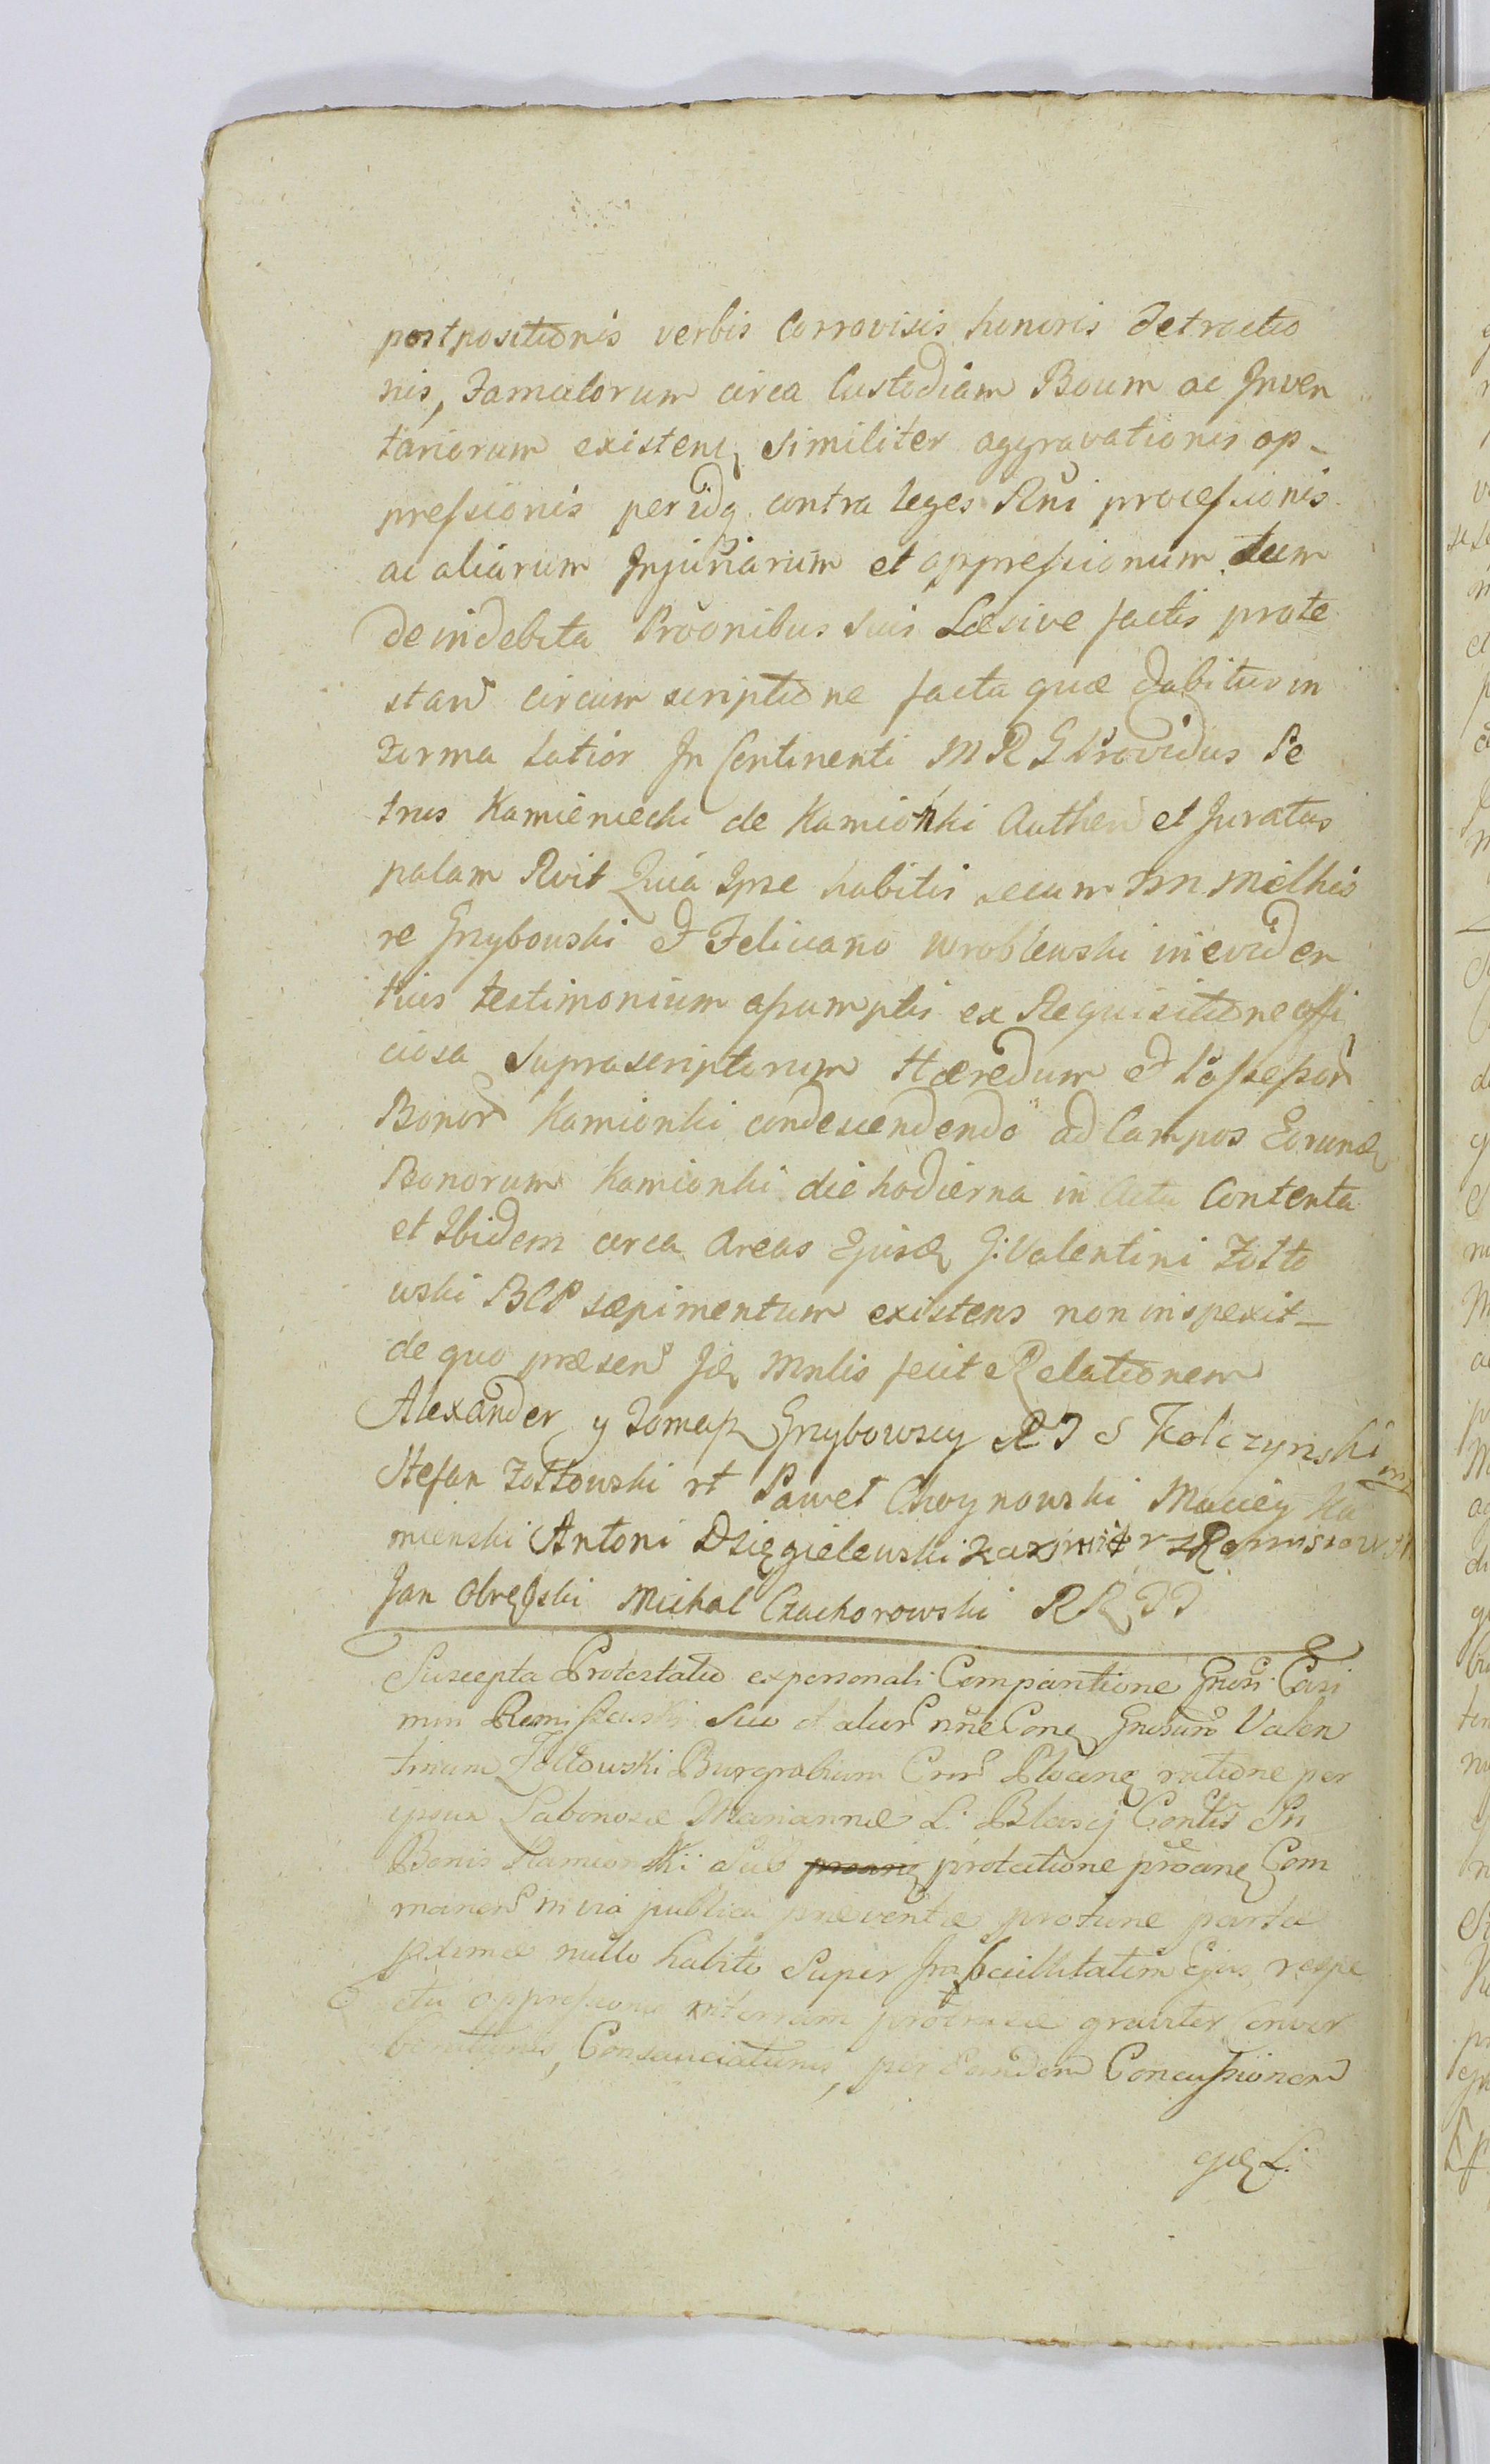 postpositionis verbis Corrovisis honoris detractio
nis, Famulorum circa Custodiam Boum ac Inven
tariorum existenꝫ similiter aggravationis op-
pressionis peridq contra leges Rñi processionis
ac aliarum Injuriarum et oppressionum tum
de indebita Proonibus suis Læsive factis prote
stand circumscriptione facta quæ dabitur in
Forma Latior In Continenti M R G Providus Pe
trus Kamieniecki de Kamionki Authen et Juratus
palam Rvit Quia Ipse habitis secum NN. Melhio
re Grzybowski et Feliciano Wroblewski in eviden
tius testimonium assumptis ex Requisitione offi
ciosa Suprascriptorum Hæredum et Possessor
Bonor Kamionki condescendendo ad Campos Eorundꝫ
Bonorum Kamionki die hodierna in Actu Contenta
et Ibidem circa Areas Ejusdꝫ G. Valentini Zołto
wski BCP sæpimentum existens non inspexit-
de quo præsen Jdꝫ Mnlis fecit Relationem
Alexander y Tomasz Grzybowscy R J S Kolczynski
Stefan Zołtowski rt Paweł Choynowski Maciey Ka
mienski Antoni Dzięgielewski Kazimierz Romiszowski
Jan Obrębski Michal Czachorowski RR JJ
Suscepta Protestatio ex personali Comparitione Grosi Casi
miri Remiszewski Suo et alior nñe Conꝫ Grosum Valen
tinum Zołtowski Burgrabium Crm Plocenꝫ ratione per
ipsum Laboriosæ Mariannæ L. Blasij Contis In
Bonis Kamionki Sub proanꝫ protectione prõanꝫ Com
manen in via publica præventæ protunc partæ
pximæ nullo habito Super Imbecillitatem Ejus respe
ctu oppressionis in terram protrusæ graviter Conver
berationis, Consauciationis, per Eandem Concussionem
gdꝫ L.